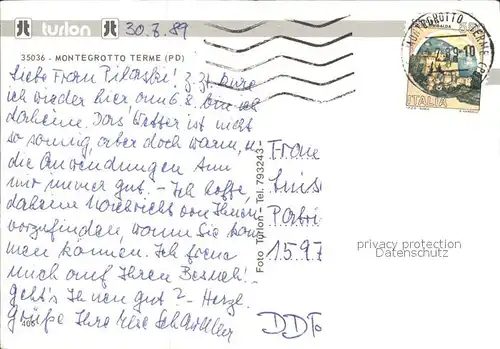 turlon 30.7.89
35036 - MONTEGROTTO TERME (PD)
Liebe Frau ! z.Zt. kure
ich wieder hier am 6.8. bin ich
daheim. Das Wetter ist nicht
so sonnig, aber doch warm, u.
die Anwendungen tun
mir immer gut. - Ich hoffe,
daheim Nachricht von Ihnen
vorzufinden, wann Sie kom-
men können. Ich freue
mich auf Ihren Besuch!
Geht's Ihnen gut? - Herzl.
Grüße Ihre
Foto Turlon - Tel. 793243 -
MONTEGROTTO TERME (PD)
ITALIA
Frau
1597
DDR
privacy protection
Datenschutz